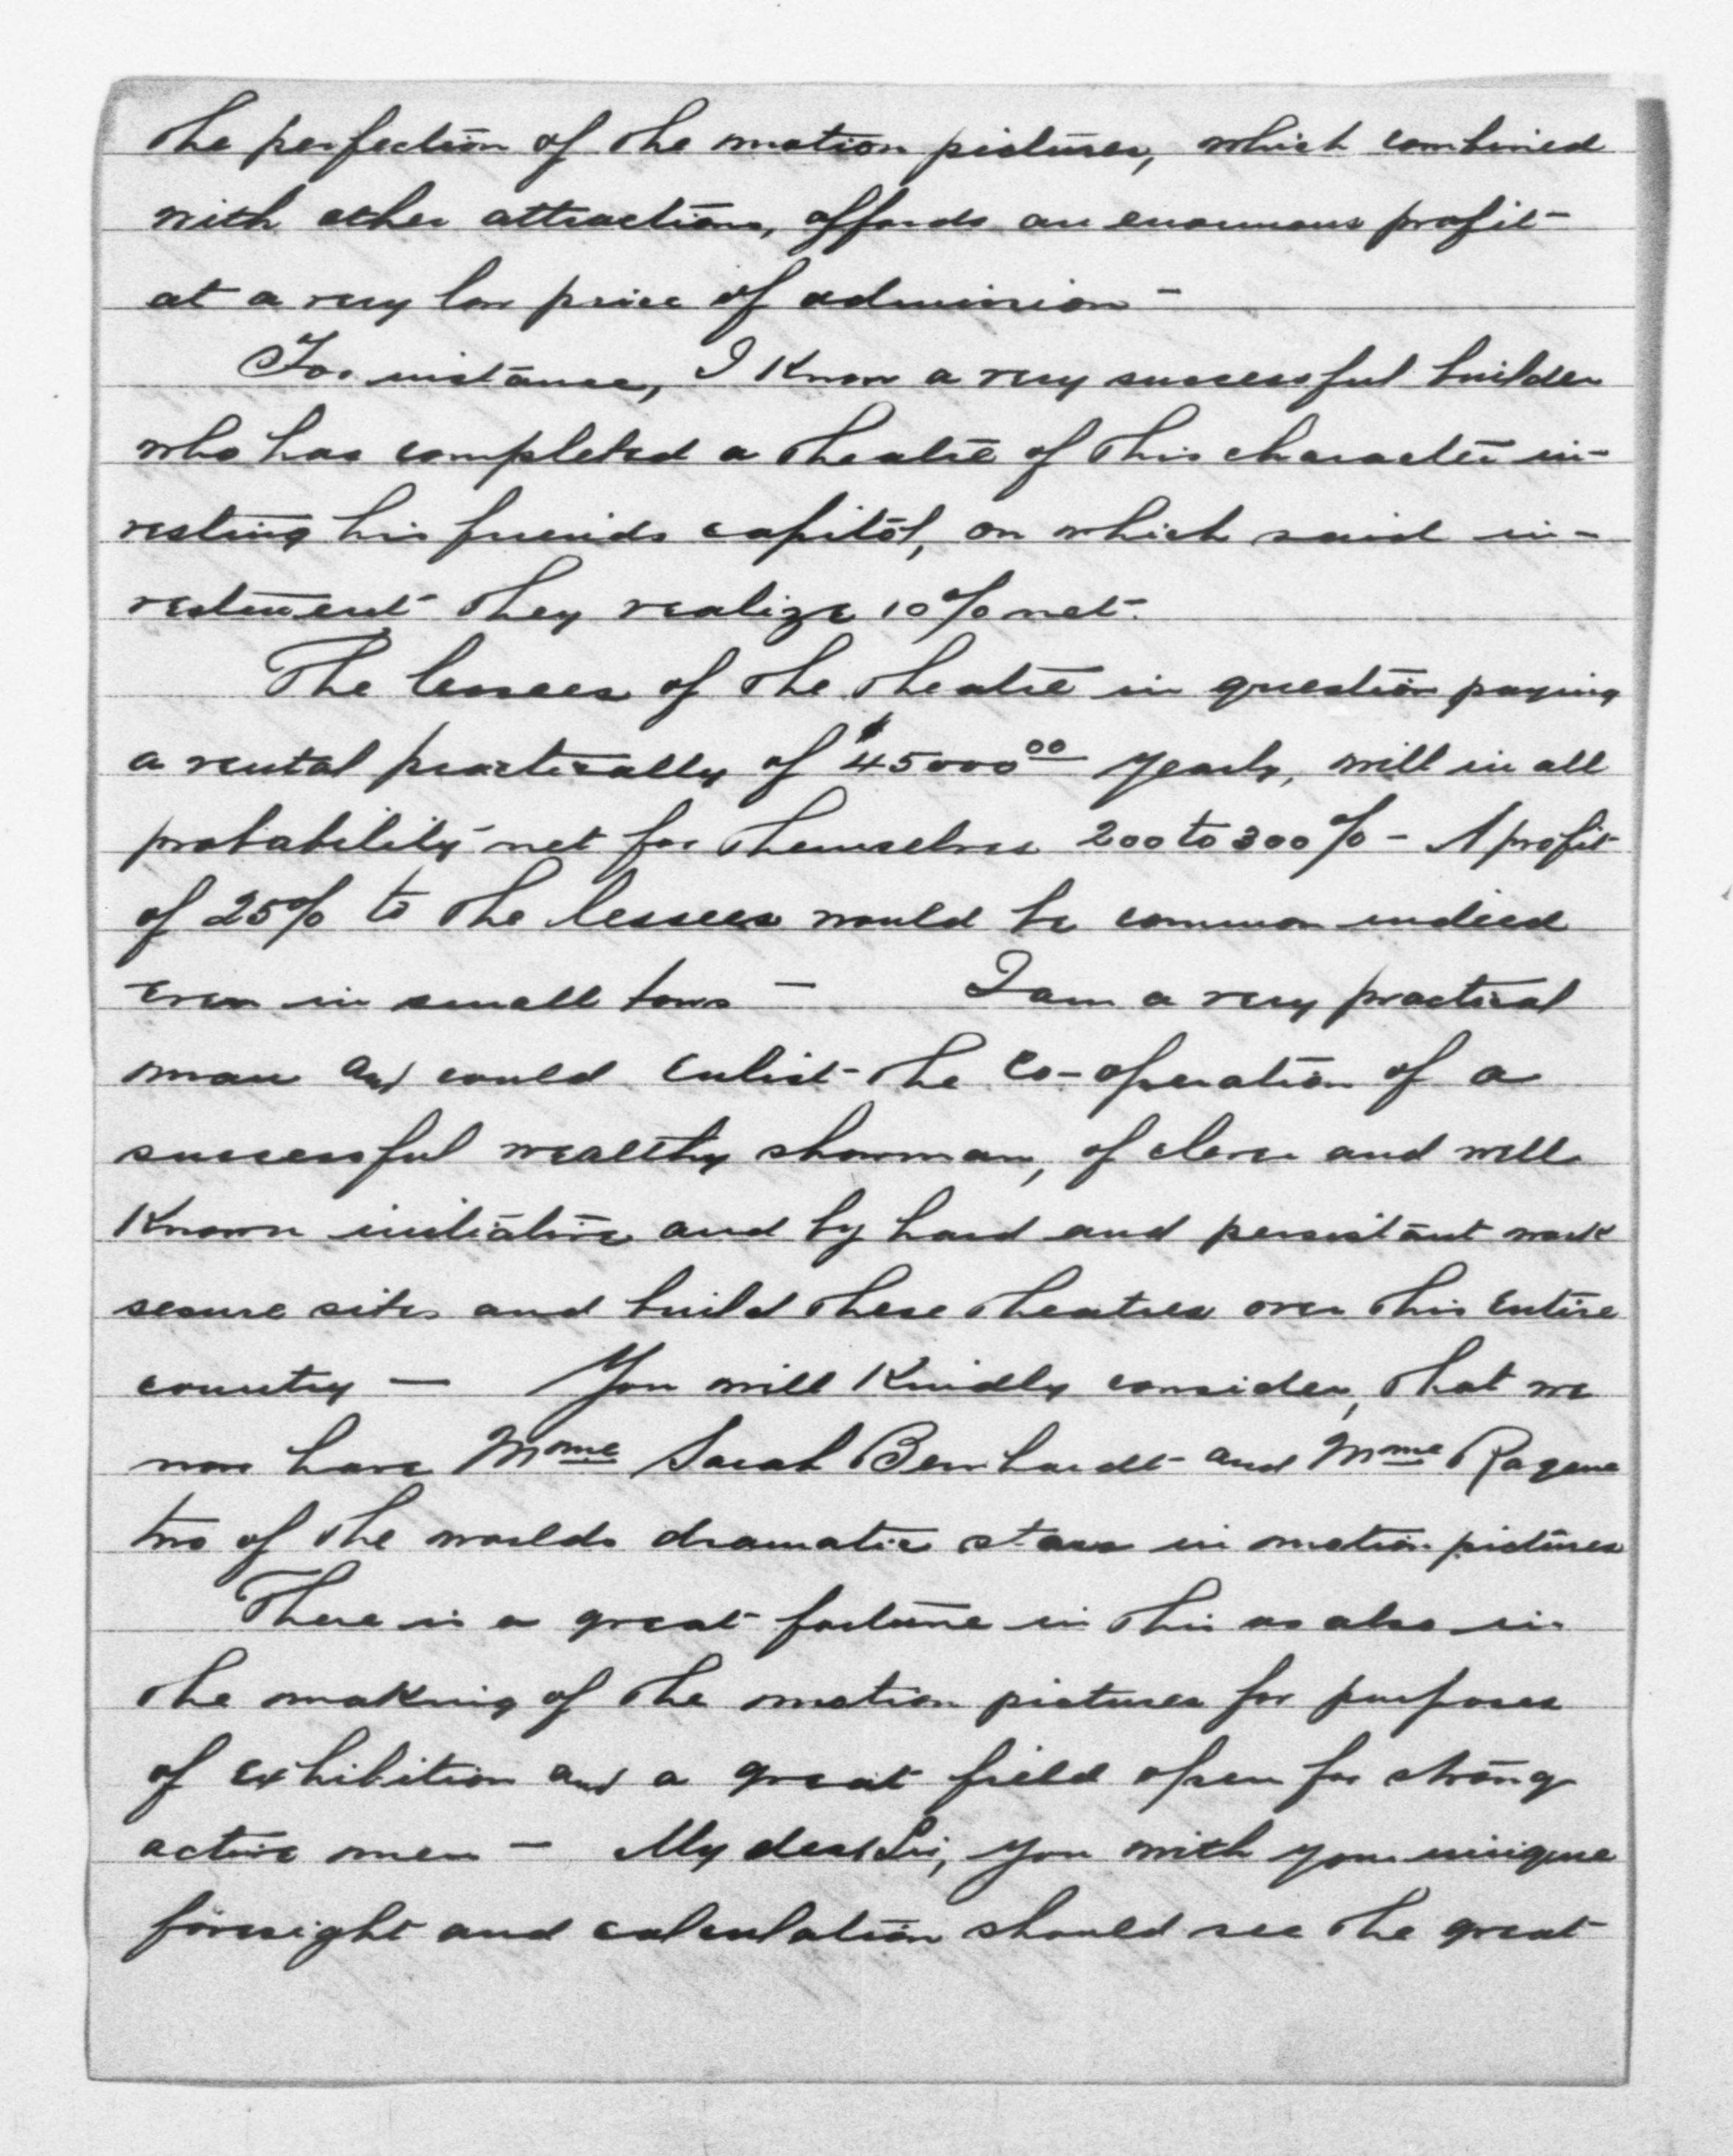 the perfection of the motion pictures, which combined
with other attractions, affords an enormous profit -
at a very low price of admission -
For instance, I know a very successful builder
who has completed a theatre of this character in-
vesting his friends capitol, on which said in-
vestment they realize 10% net.
The lessees of the theatre in question paying
a rental practically of $45000 00 yearly, will in all
probability net for themselves 200 to 300% - A profit
of 25% to the lessees would be common indeed
even in small towns - I am a very practical
man and could enlist the co-operation of a
successful wealthy showman, of clever and well
known initiative and by hard and persistant work
secure sites and build these theatres over this entire
country - You will kindly consider, that we
now have Mme Sarah Bernhardt and Mme Ragene
two of the worlds dramatic stars in motion pictures
There is a great fortune in this as also in
the making of the motion pictures for purposes
of exhibition and a great field open for strong
active men - My dear Sir, you with your unique
foresight and calculation should see the great